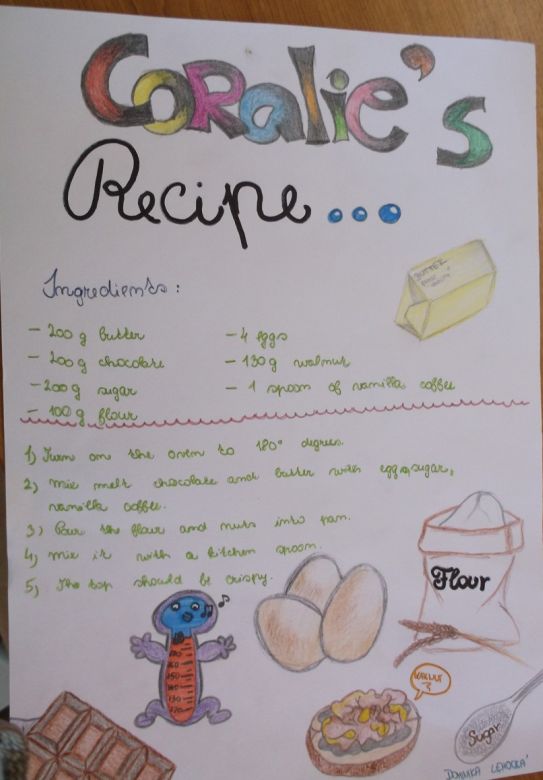 CORalie's
Recipe...
Ingredients:
- 200 g butter
- 200 g chocolate
- 200 g sugar
- 100 g flour
- 4 eggs
- 130 g walnut
- 1 spoon of vanilla coffee
1) Turn on the oven to 180° degrees.
2) mix melt chocolate and butter with eggs, sugar,
vanilla coffee.
3) Pour the flour and nuts into pan.
4) mix it with a kitchen spoon.
5) The top should be crispy.
BUTTER
Flour
WALNUT
Sugar
DOMINIKA